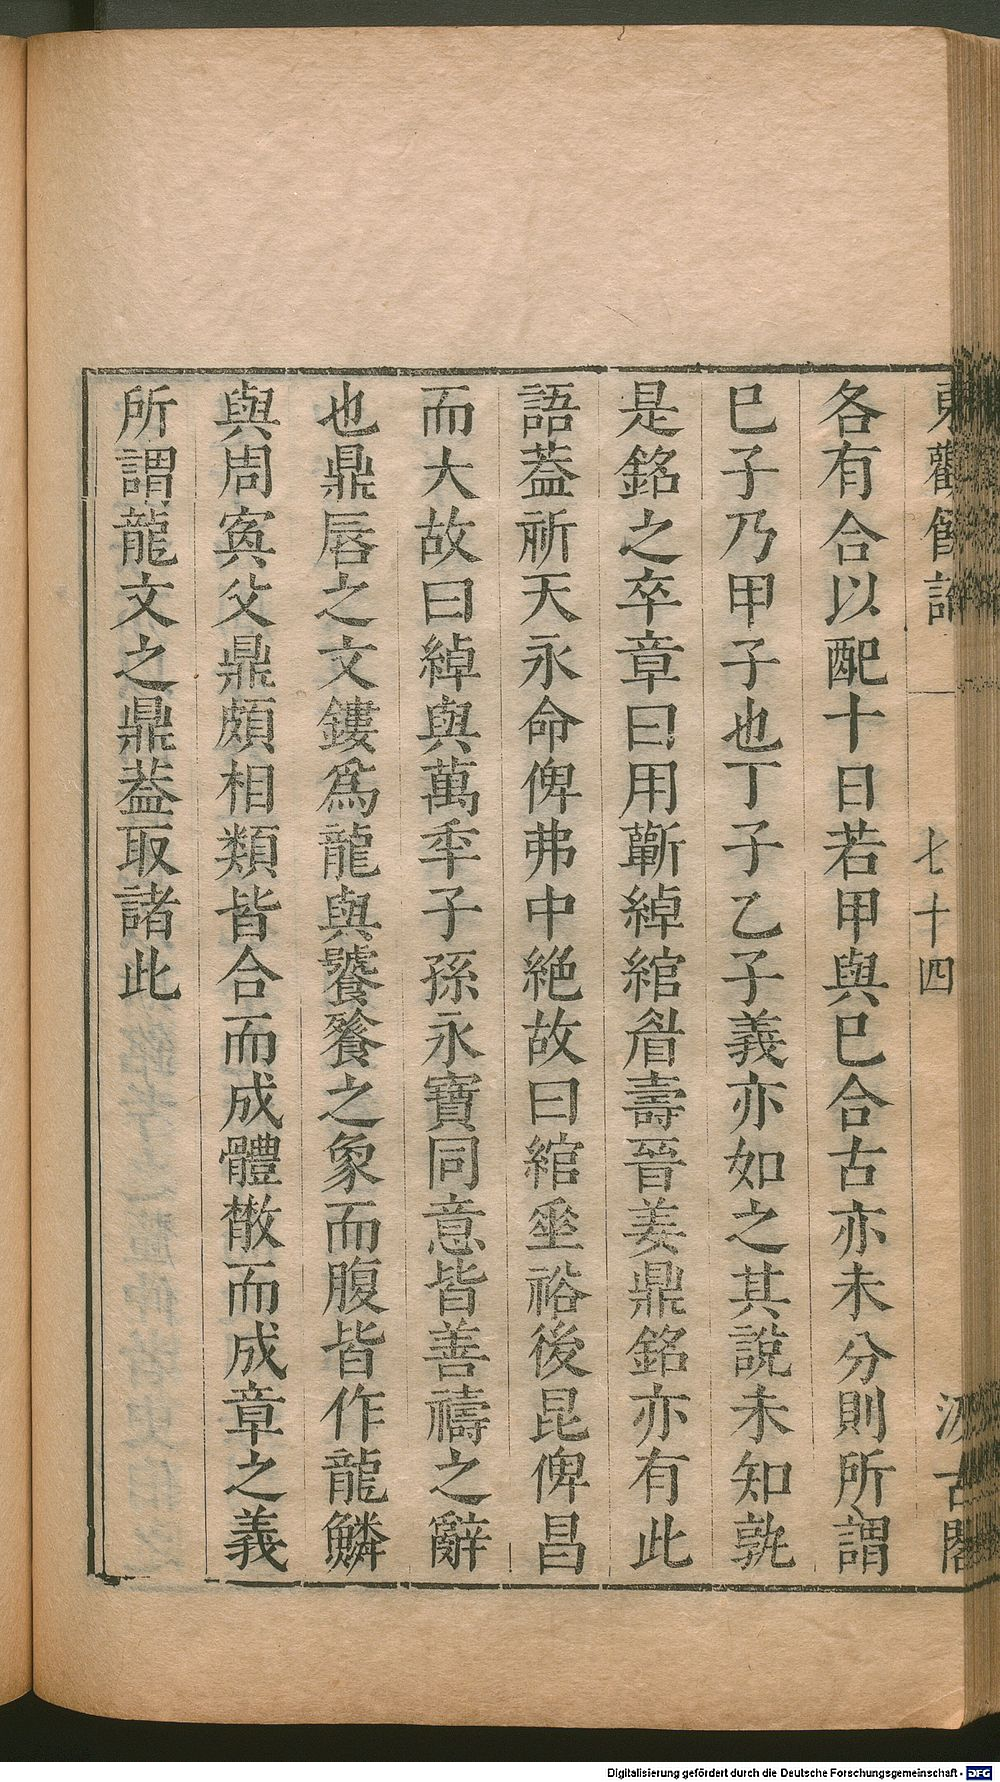 東觀餘論
七十四
汲古閣
各有合以配十日若甲與巳合古亦未分則所謂
巳子乃甲子也丁子乙子義亦如之其說未知孰
是銘之卒章曰用蘄綽綰眉壽晉姜鼎銘亦有此
語葢祈天永命俾弗中絕故曰綰埀裕後昆俾昌
而大故曰綽與萬秊子孫永寶同意皆善禱之辭
也鼎唇之文鏤爲龍與饕餮之象而腹皆作龍鱗
與周寅父鼎頗相類皆合而成體散而成章之義
所謂龍文之鼎葢取諸此
Digitalisierung gefördert durch die Deutsche Forschungsgemeinschaft - DFG